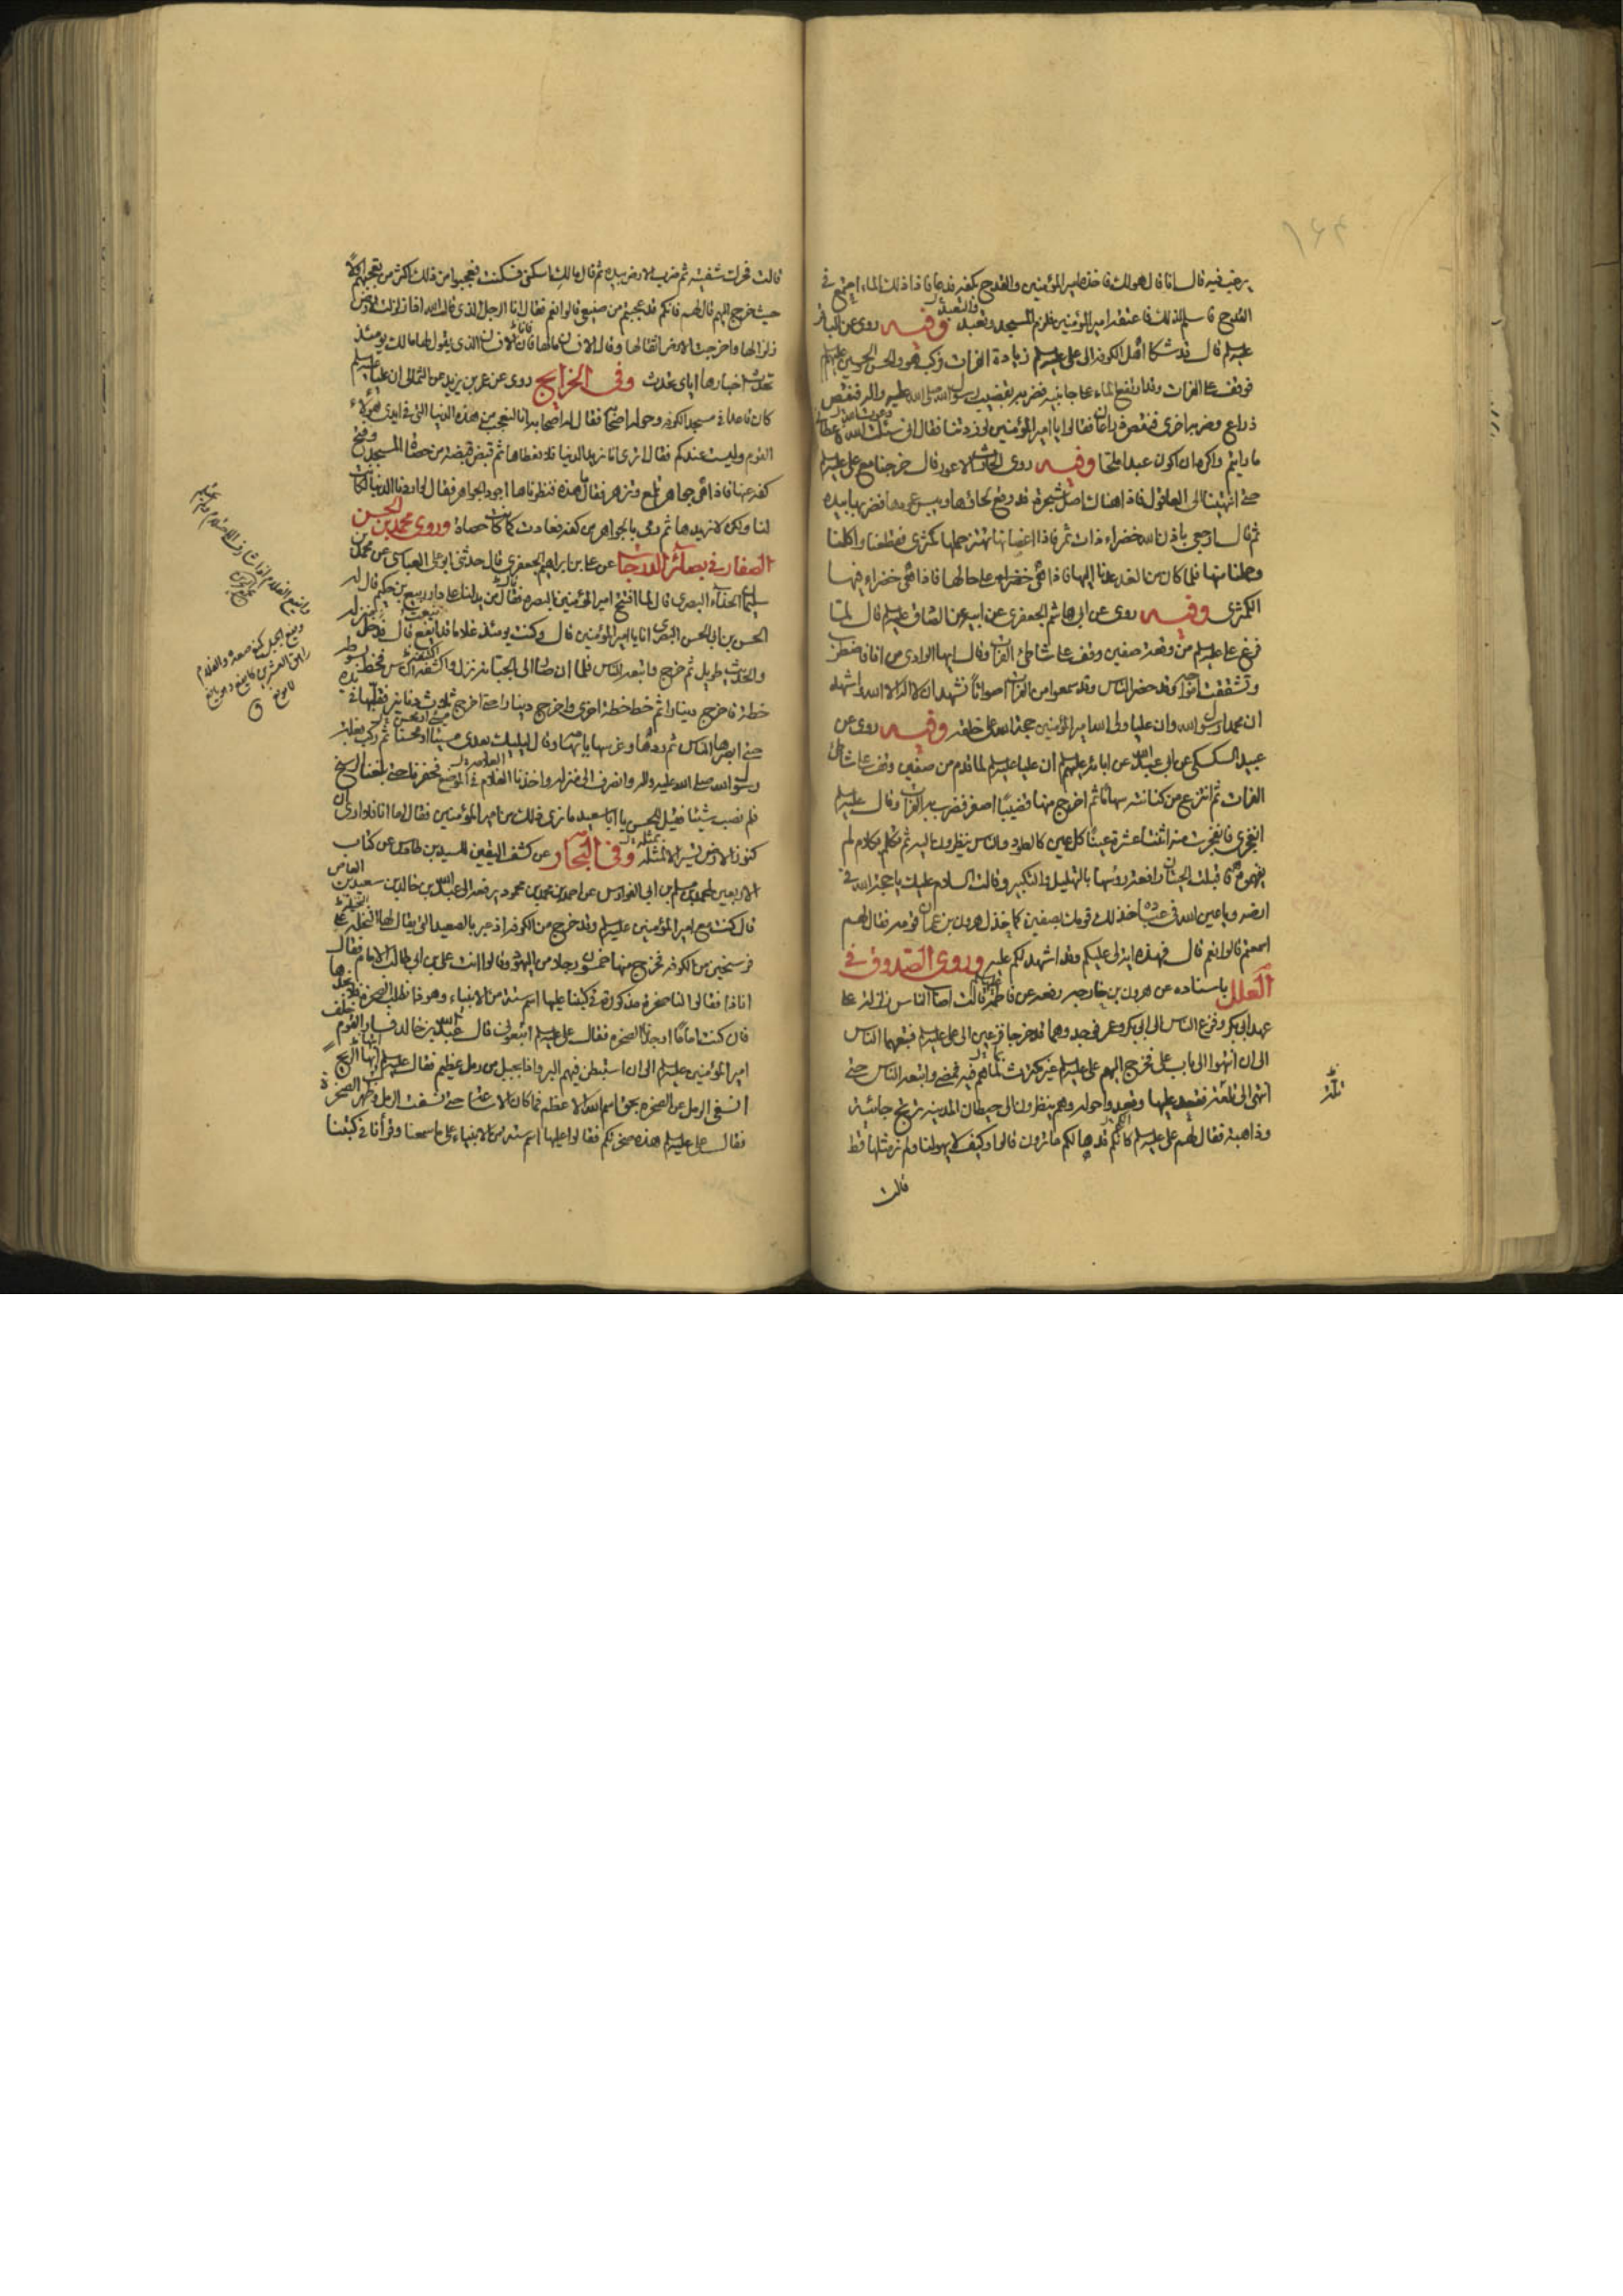 يرغب فيه قال انا قال هو لك فاخذ امير المؤمنين والقدح بكفه فدعا فاذا ذلك الماء اجتمع في
القدح فاسلم لذلك فاعتقه امير المؤمنين فلزم المسجد وتعبد وفيه روى عن الباقر
عليه السلام قال قد شكا اهل الكوفة الى علي عليه السلام زيادة الفرات فركب هو والحسن والحسين عليهم
فوقف على الفرات وقد ارتفع الماء على جانبيه فضربه بقضيب رسول الله صلى الله عليه واله فنقص
ذراع وضربه اخرى فنقص ذراعان فقالوا يا امير المؤمنين لو زدتنا فقال اني سئلت الله فاعطاني
ما رايتم واكره ان اكون عبدا ملحا وفيه روى الحارث الاعور قال خرجنا مع علي عليه السلام
حتى انتهينا الى العاقول فاذا هناك اصل شجرة قد وقع لحائها ويبس عودها فضربها بيده
ثم قال ارجعي باذن الله خضراء ذات ثمر فاذا اغصانها تهتز حملها كمثرى فقطعنا واكلنا
وحملنا منها فلما كان من الغد عدنا اليها فاذا هي خضراء على حالها فاذا هي خضراء فيها
الكمثرى وفيه روى عن ابي هاشم الجعفري عن ابيه عن الصادق عليه السلام قال لما
فرغ علي عليه السلام من وقعة صفين وقف على شاطئ الفرات وقال ايها الوادي من انا فاضطرب
وتشققت امواجه وقد حضر الناس وقد سمعوا من الفرات اصواتا نشهد ان لا اله الا الله واشهد
ان محمدا رسول الله وان عليا ولي الله امير المؤمنين حجة الله على خلقه وفيه روى عن
عبيد السكسكي عن ابي عبد الله عن ابائه عليهم ان عليا عليه السلام لما قدم من صفين وقف على شاطئ
الفرات ثم انتزع من كنانته سهاما ثم اخرج منها قضيبا اصفر فضرب به الفرات وقال عليه السلام
انفجري فانفجرت منه اثنتا عشرة عينا كل عين كالطود والناس ينظرون اليه ثم تكلم بكلام لم
يفهموه فاقبلت الحيتان رافعة رؤسها بالتهليل والتكبير وقالت السلام عليك يا حجة الله في
ارضه ويا عين الله في عباده خذلك قومك بصفين كما خذل هرون بن عمران قومه فقال لهم
اسمعتم قالوا نعم قال فهذه اية لي عليكم وقد اشهدتكم عليه وروى الصدوق في
العلل باسناده عن هرون بن خارجة رفعه عن فاطمة قالت اصاب الناس زلزلة على
عهد ابي بكر وفزع الناس الى ابي بكر وعمر فوجدوهما قد خرجا فزعين الى علي عليه السلام فتبعهما الناس
الى ان انتهوا الى باب علي فخرج اليهم علي عليه السلام غير مكترث لما هم فيه فمضى واتبعه الناس حتى
انتهى الى تلعة فقعد عليها وقعدوا حوله وهم ينظرون الى حيطان المدينة ترتج جائية
وذاهبة فقال لهم علي عليه السلام كانكم قد هالكم ما ترون قالوا وكيف لا يهولنا ولم نر مثلها قط
قالت
قالت فحرك شفتيه ثم ضرب الارض بيده ثم قال مالك اسكني فسكنت فعجبوا من ذلك اكثر من تعجبهم اولا
حيث خرج اليهم قال لهم فانكم قد عجبتم من صنيعي قالوا نعم فقال انا الرجل الذي قال الله اذا زلزلت الارض
زلزالها واخرجت الارض اثقالها وقال الانسان مالها فانا الانسان الذي يقول لها مالك يومئذ
تحدث اخبارها اياي تحدث وفي الخرايج روى عن عمر بن يزيد عن الثمالي ان عليا عليه السلام
كان قاعدا في مسجد الكوفة وحوله اصحابه فقال له اصحابه انا لنعجب من هذه الدنيا التي في ايدي هؤلاء
القوم وليست عندكم فقال اترى انا نريد الدنيا فلا نعطاها ثم قبض قبضة من حصى المسجد وفتح
كفه عنها فاذا هي جواهر تلمع وتزهر فقال ما هذه فنظرنا اجود الجواهر فقال لو اردنا الدنيا لكانت
لنا ولكن لا نريدها ثم رمى بالجواهر من كفه فعادت كما كانت حصاة وروى محمد بن الحسن
الصفار في بصائر الدرجات عن علي بن ابراهيم الجعفري قال حدثني ابو علي العباسي عن محمد بن
سليمان الحذاء البصري قال لما افتتح امير المؤمنين البصرة فقال من يدلنا على دار ربيع بن حكيم قال له
الحسن بن ابي الحسن البصري انا يا امير المؤمنين قال وكنت يومئذ غلاما قد ايفع قال فدخل منزله
والحديث طويل ثم خرج وتبعه الناس فلما ان صار الى الجبانة نزل واكتنفه الناس فخط بسوطه
خطة فاخرج دينارا ثم خط خطة اخرى واخرج دينارا حتى اخرج ثلاث دنانير فقلبها في يده
حتى ابصرها الناس ثم ردها وغرسها بابهامه وقال ليليك بعدي مسيئ او محسن ثم ركب بغلة
رسول الله صلى الله عليه واله وانصرف الى منزله واخذنا العلامة في الموضع فحفرنا حتى بلغنا الرسخ
فلم نصب شيئا فقيل للحسن يا ابا سعيد ما ترى ذلك من امير المؤمنين فقال اما انا فلا ادري ان
كنوز الارض تسير الا لمثله وفي البحار عن كشف اليقين للسيد بن طاوس عن كتاب
الاربعين لمحمد بن مسلم بن ابي الفوارس عن احمد بن محمد بن محمود يرفعه الى عبد الله بن خالد بن سعيد بن العاص
قال كنت مع امير المؤمنين عليه السلام وقد خرج من الكوفة اذ عبر بالصعيد التي يقال لها النخلة على
فرسخين من الكوفة فخرج منها خمسون رجلا من اليهود وقالوا انت علي بن ابي طالب الامام فقال
انا ذا فقالوا لنا صخرة مذكورة في كتبنا عليها اسم ستة من الانبياء وهوذا نطلب الصخرة فلا نجدها
فان كنت اماما اوجدنا الصخرة فقال علي عليه السلام اتبعوني قال عبد الله بن خالد فسار القوم خلف
امير المؤمنين عليه السلام الى ان استبطن فيهم البر واذا بجبل من رمل عظيم فقال عليه السلام ايتها الريح
انسفي الرمل عن الصخرة بحق اسم الله الاعظم فما كان الا ساعة حتى نسفت الرمل وظهرت الصخرة
فقال علي عليه السلام هذه صخرتكم فقالوا عليها اسم ستة من الانبياء على ما سمعنا وقرأنا في كتبنا